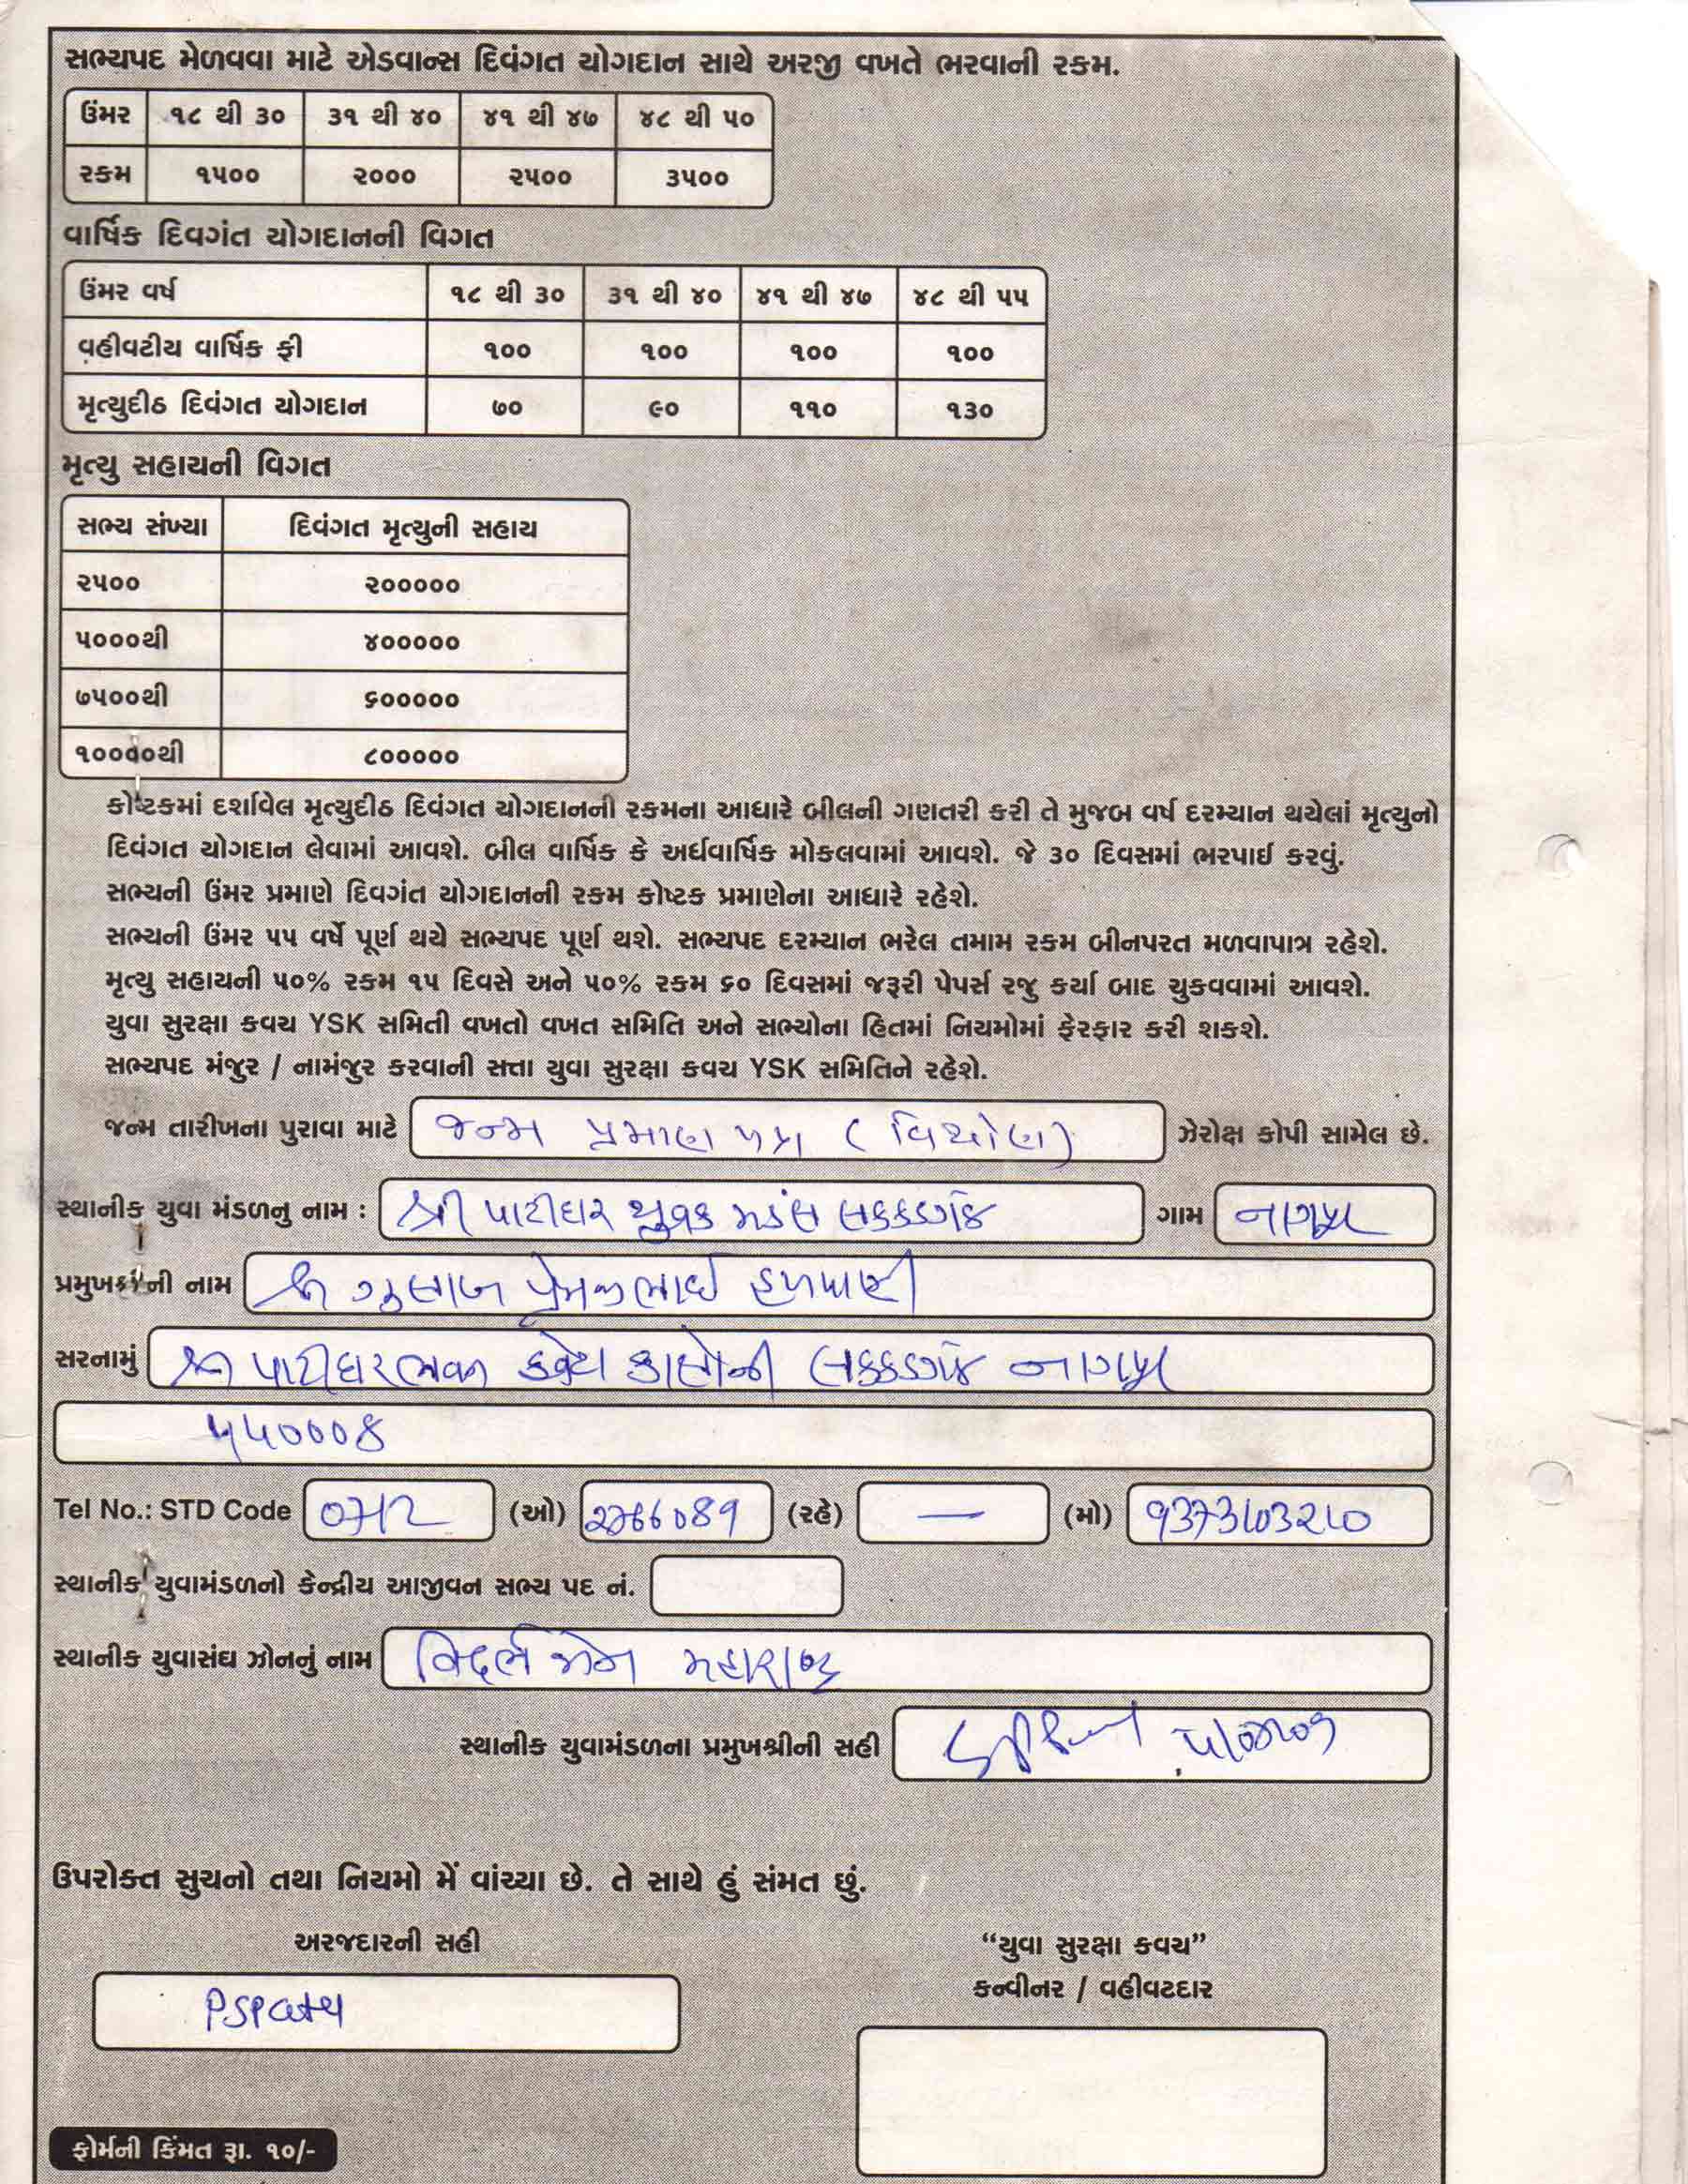 સભ્યપદ મેળવવા માટે એડવાન્સ દિવંગત યોગદાન સાથે અરજી વખતે ભરવાની રકમ.
ઉંમર ૧૮ થી ૩૦ ૩૧ થી ૪૦ ૪૧ થી ૪૭ ૪૮ થી ૫૦
રકમ ૧૫૦૦ ૨૦૦૦ ૨૫૦૦ ૩૫૦૦
વાર્ષિક દિવગંત યોગદાનની વિગત
ઉંમર વર્ષ ૧૮ થી ૩૦ ૩૧ થી ૪૦ ૪૧ થી ૪૭ ૪૮ થી ૫૫
વહીવટીય વાર્ષિક ફી ૧૦૦ ૧૦૦ ૧૦૦ ૧૦૦
મૃત્યુદીઠ દિવંગત યોગદાન ૭૦ ૯૦ ૧૧૦ ૧૩૦
મૃત્યુ સહાયની વિગત
સભ્ય સંખ્યા દિવંગત મૃત્યુની સહાય
૨૫૦૦ ૨૦૦૦૦૦
૫૦૦૦થી ૪૦૦૦૦૦
૭૫૦૦થી ૬૦૦૦૦૦
૧૦૦૦૦થી ૮૦૦૦૦૦
કોષ્ટકમાં દર્શાવેલ મૃત્યુદીઠ દિવંગત યોગદાનની રકમના આધારે બીલની ગણતરી કરી તે મુજબ વર્ષ દરમ્યાન થયેલાં મૃત્યુનો
દિવંગત યોગદાન લેવામાં આવશે. બીલ વાર્ષિક કે અર્ધવાર્ષિક મોકલવામાં આવશે. જે ૩૦ દિવસમાં ભરપાઈ કરવું.
સભ્યની ઉંમર પ્રમાણે દિવગંત યોગદાનની રકમ કોષ્ટક પ્રમાણેના આધારે રહેશે.
સભ્યની ઉંમર ૫૫ વર્ષે પૂર્ણ થયે સભ્યપદ પૂર્ણ થશે. સભ્યપદ દરમ્યાન ભરેલ તમામ રકમ બીનપરત મળવાપાત્ર રહેશે.
મૃત્યુ સહાયની ૫૦% રકમ ૧૫ દિવસે અને ૫૦% રકમ ૬૦ દિવસમાં જરૂરી પેપર્સ રજુ કર્યા બાદ ચુકવવામાં આવશે.
યુવા સુરક્ષા કવચ YSK સમિતી વખતો વખત સમિતિ અને સભ્યોના હિતમાં નિયમોમાં ફેરફાર કરી શકશે.
સભ્યપદ મંજુર / નામંજુર કરવાની સત્તા યુવા સુરક્ષા કવચ YSK સમિતિને રહેશે.
જન્મ તારીખના પુરાવા માટે જન્મ પ્રમાણ પત્ર (વિથોણ) ઝેરોક્ષ કોપી સામેલ છે.
સ્થાનીક યુવા મંડળનુ નામ : શ્રી પાટીદાર યુવક મડંલ લકકડગંજ ગામ નાગપુર
પ્રમુખશ્રીની નામ શ્રી ગુલાબ પ્રેમજીભાઈ
સરનામું શ્રી પાટીદાર ભવન ક્વેટા કાલોની લકકડગંજ નાગપુર
Tel No.: STD Code 0712 (ઓ) (રહે) — (મો)
સ્થાનીક યુવામંડળનો કેન્દ્રીય આજીવન સભ્ય પદ નં.
સ્થાનીક યુવાસંઘ ઝોનનું નામ વિદર્ભ ઝોન મહારાષ્ટ્ર
સ્થાનીક યુવામંડળના પ્રમુખશ્રીની સહી
ઉપરોક્ત સુચનો તથા નિયમો મેં વાંચ્યા છે. તે સાથે હું સંમત છું.
અરજદારની સહી
“યુવા સુરક્ષા કવચ”
કન્વીનર / વહીવટદાર
ફોર્મની કિંમત રૂા. ૧૦/-